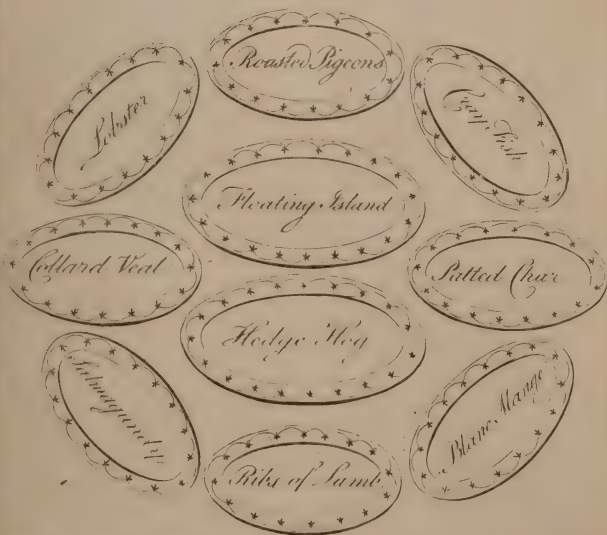 Roasted Pigeons
Lobster
Cray Fish
Floating Island
Collard Veal
Potted Char
Hedge Hog
Salmagundy
Blanc Mange
Ribs of Lamb